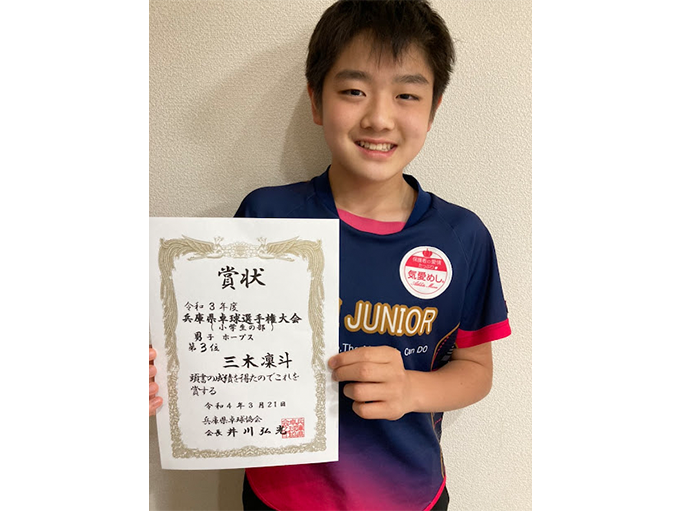 賞状
令和3年度
兵庫県卓球選手権大会
(小学生の部)
男子 ホープス
第3位
三木凜斗
頭書の成績を得たのでこれを
賞する
令和4年3月21日
兵庫県卓球協会
会長 井川弘光
気愛めし
JUNIOR
Can DO